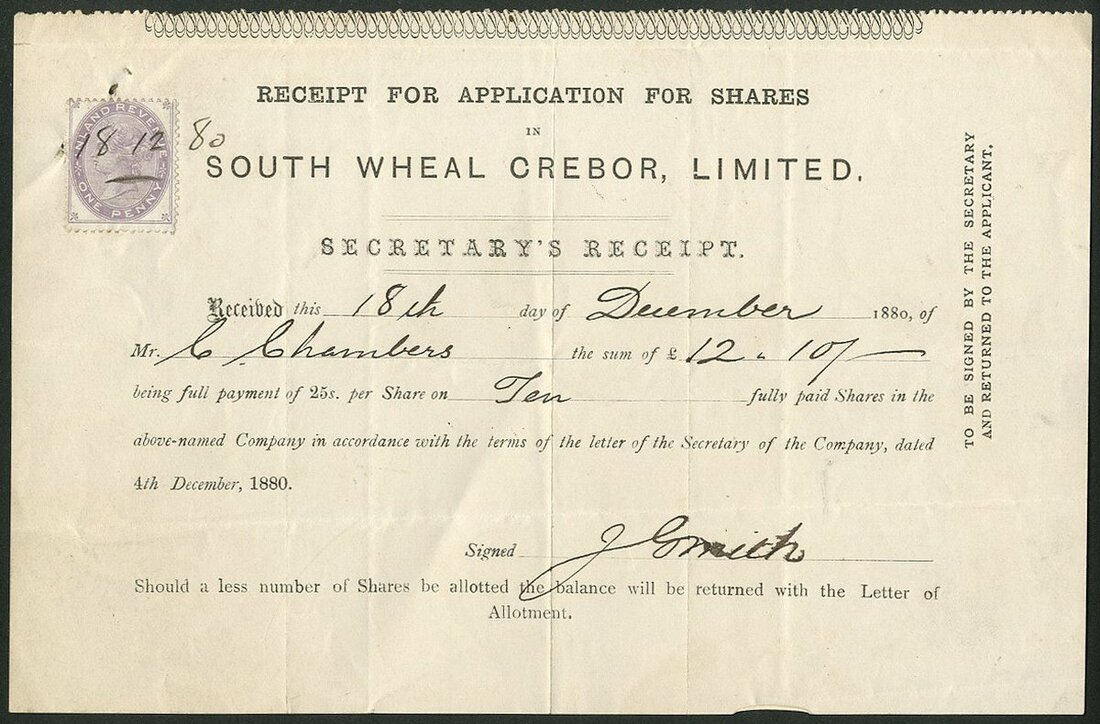 RECEIPT FOR APPLICATION FOR SHARES
IN
SOUTH WHEAL CREBOR, LIMITED.
SECRETARY'S RECEIPT.
INLAND REVE
18 12 80
ONE PENNY
Received this 18th day of December 1880, of
Mr. C Chambers the sum of £ 12 " 10/—
being full payment of 25s. per Share on Ten fully paid Shares in the
above-named Company in accordance with the terms of the letter of the Secretary of the Company, dated
4th December, 1880.
Signed J Smith
Should a less number of Shares be allotted the balance will be returned with the Letter of
Allotment.
TO BE SIGNED BY THE SECRETARY
AND RETURNED TO THE APPLICANT.